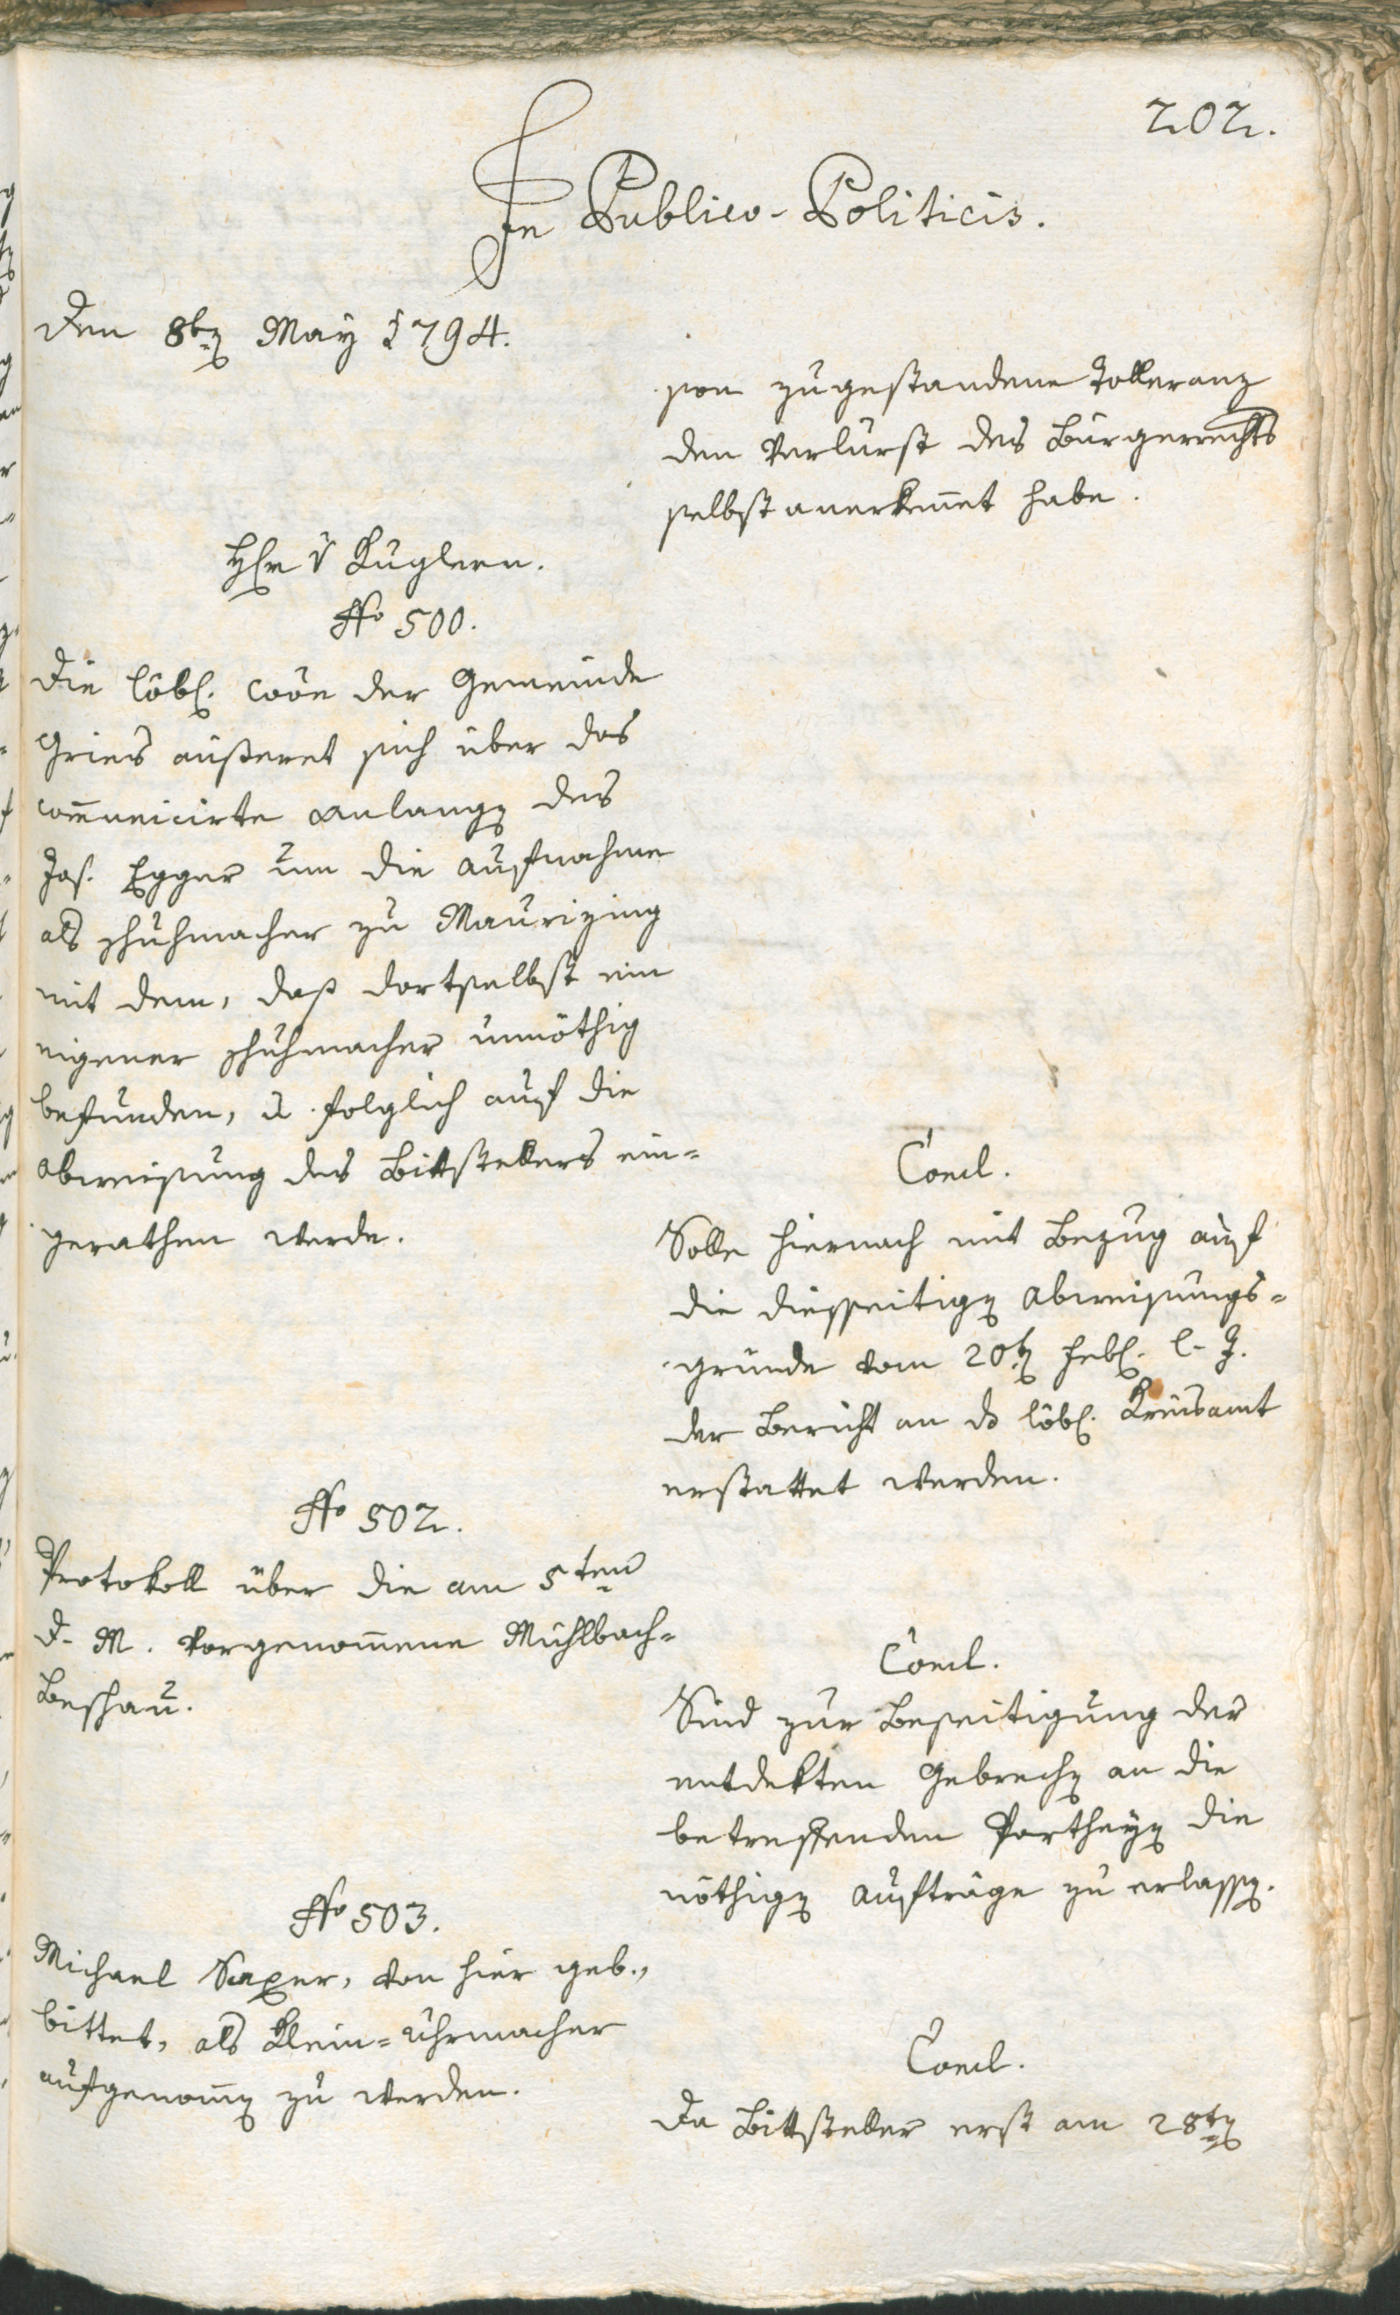 202.
In Publico-Politicis.
Den 8ten May 1794.
sion zugestandene Tolleranz
den Verlurst des Burgerrechts
selbst anerkennet habe.
H. v Kuglern.
No 500.
Die löbl. Coõn der Gemeinde
Gries außeret sich über das
com̄unicirte Anlangen des
Jos. Egger um die Aufnahme
als Schuhmacher zu Maurizing
mit dem, daß dortselbst ein
eigener Schuhmacher unnöthig
befunden, u. folglich auf die
Abweisung des Bittstellers ein=
gerathen werde.
Concl.
Solle hiernach mit Bezug auf
die diesseitigen Abweisungs=
gründe vom 20ten Febl. l. J.
der Bericht an das löbl. Kreisamt
erstattet werden.
No 502.
Protokoll über die am 5ten
d. M. vorgenom̄ene Mühlbach=
Beschau.
Concl.
Sind zur Beseitigung der
entdekten Gebrechen an die
betreffenden Partheyen die
nöthigen Aufträge zu erlassen.
No 503.
Michael Saxer, von hier geb.,
bittet, als Klein=Uhrmacher
aufgenom̄en zu werden.
Concl.
Da Bittsteller erst am 28ten